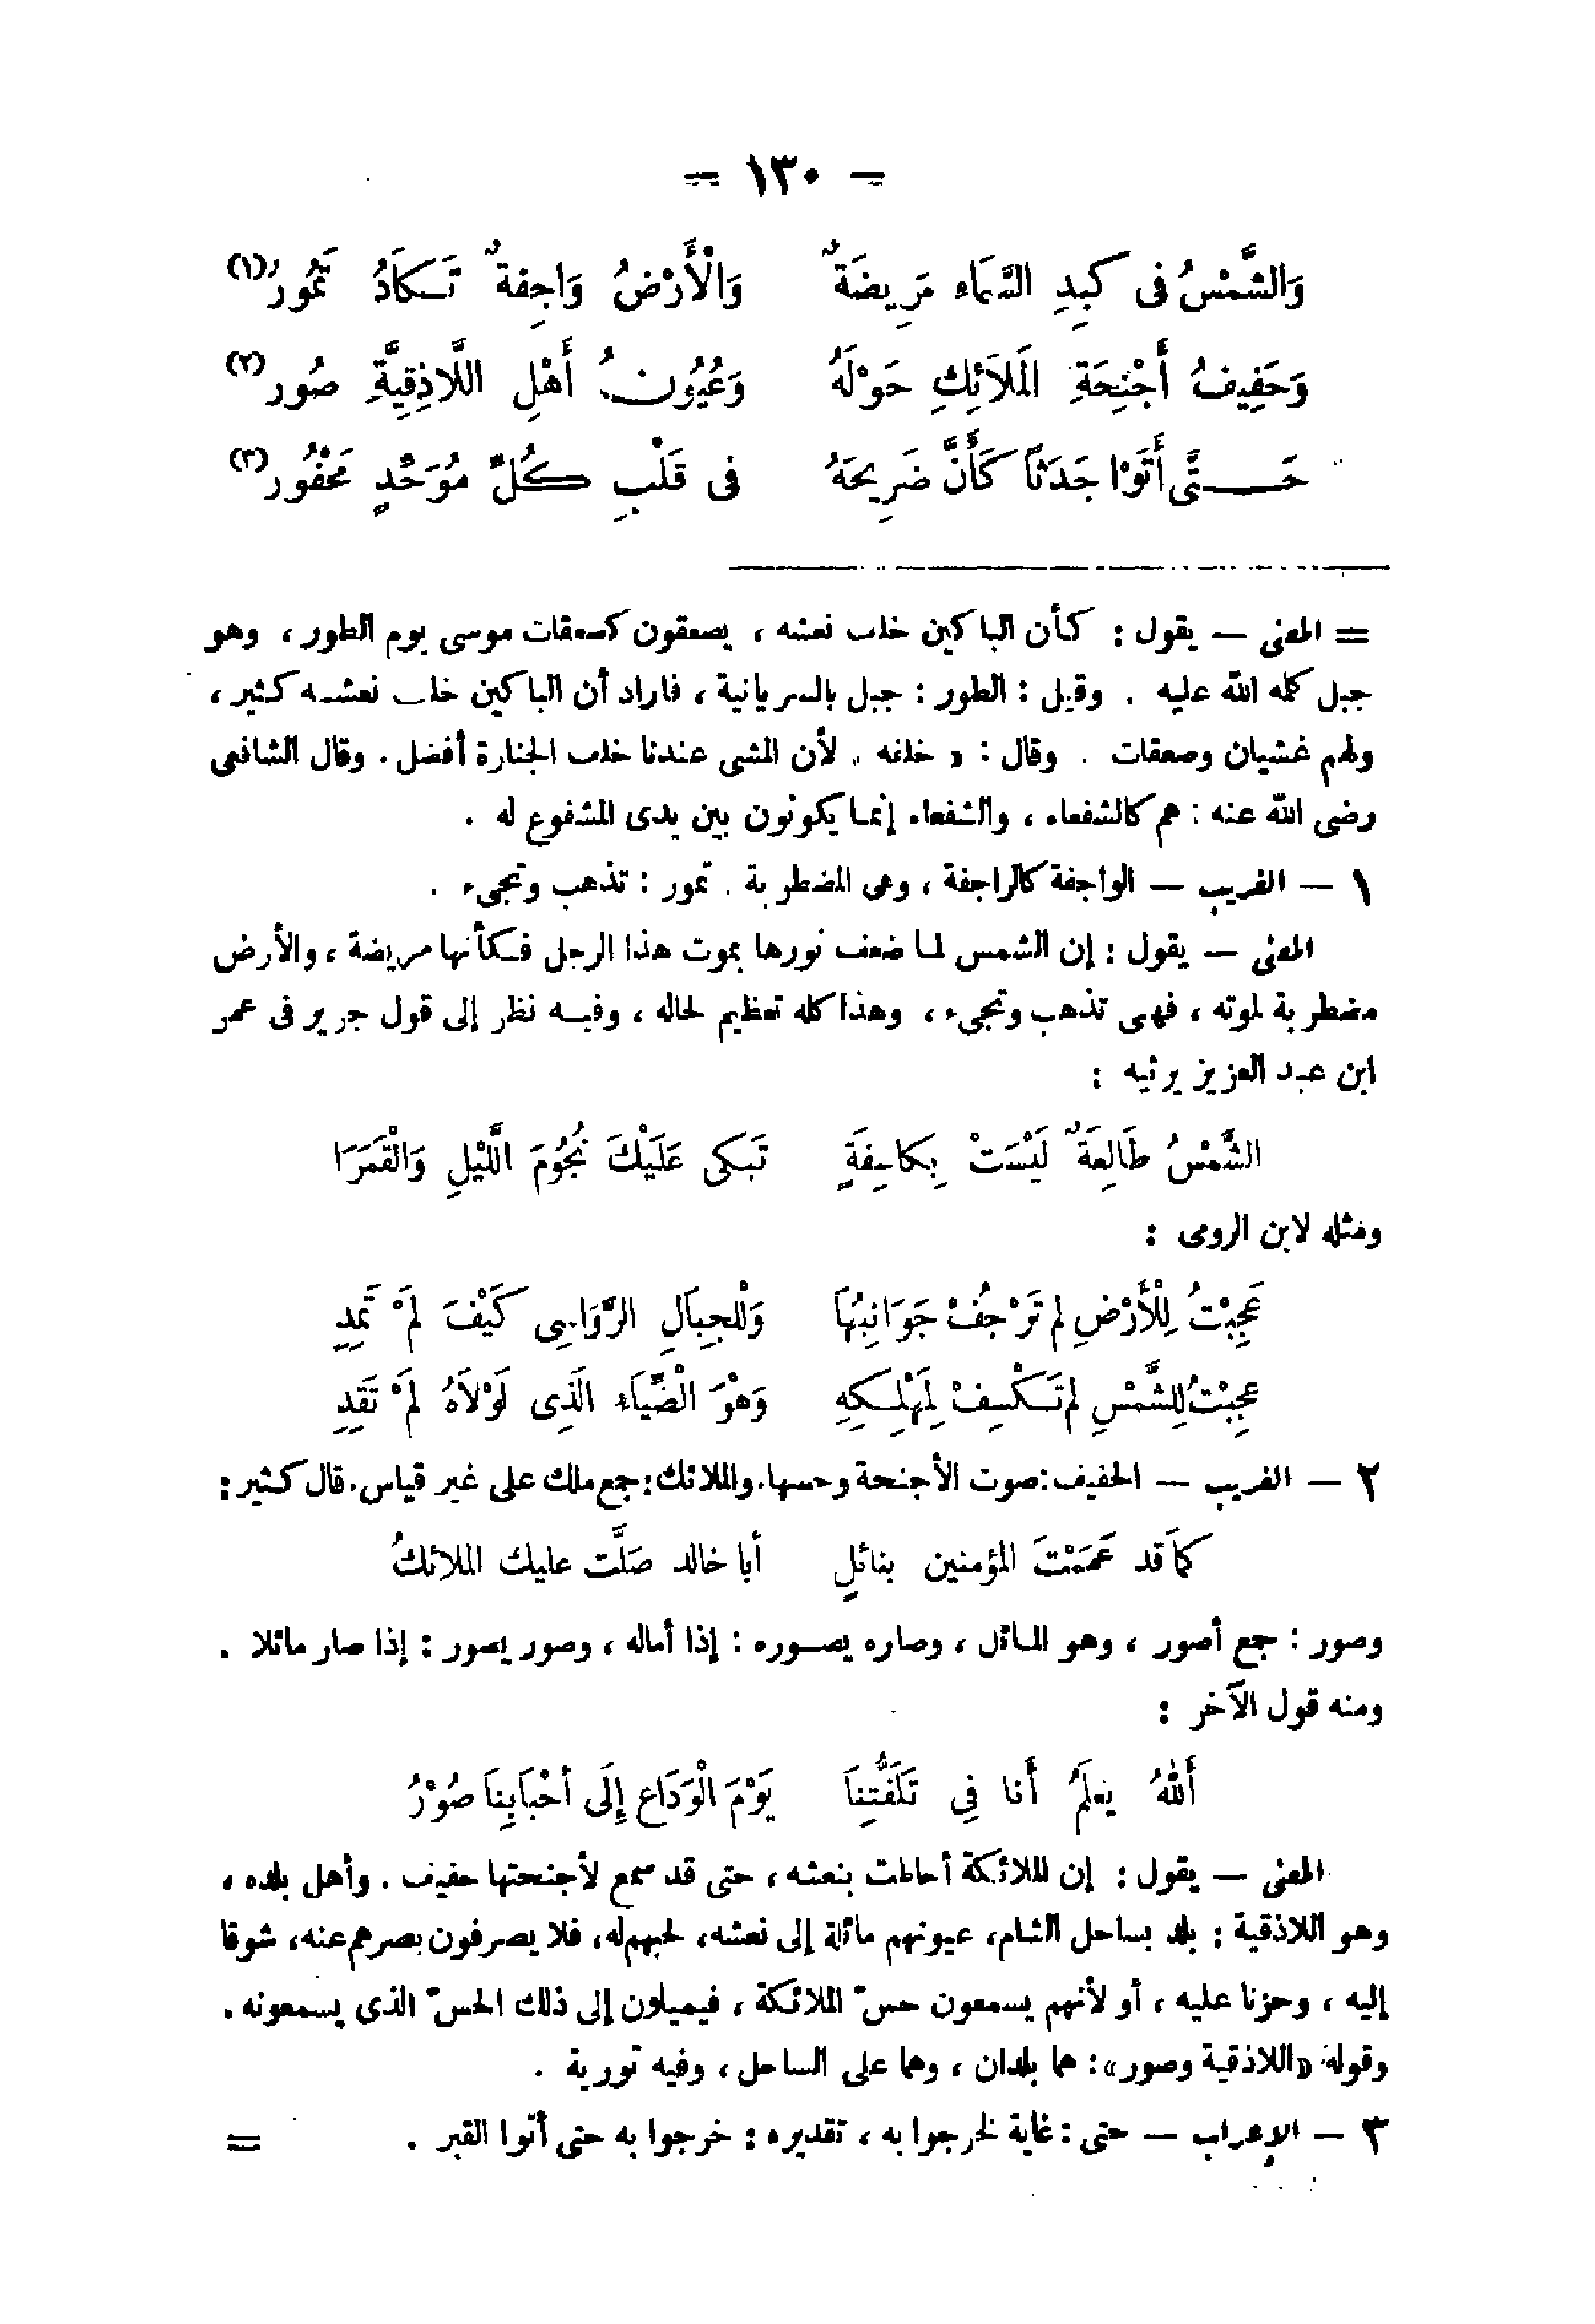 = ١٣٠ =
وَالشَّمْسُ فى كَبِدِ السَّمَاء مَرِيضَةٌ وَالْأَرْضُ وَاجِفةٌ تَكَادُ تَمُورُ(١)
وَحَفِيفُ أَجْنِحَةِ الَملاَئِكِ حَوْلَهُ وَعُيُونُ أَهْلِ اللَّاذِقِيَّةِ صُورُ(٢)
حَتَّى أَتَوْا جَدَثاً كَأَنَّ ضَرِيحَهُ فى قَلْبِ كُلِّ مُوَحِّدٍ مَحْفُورُ(٣)
= المعنى — يقول : كأن الباكين خلف نعشه ، يصعقون كصعقات موسى يوم الطور ، وهو
جبل كله الله عليه . وقيل : الطور : جبل بالسريانية ، فاراد أن الباكين خلف نعشه كثير ،
ولهم غشيان وصعقات . وقال : « خلفه » لأن المشى عندنا خلف الجنازة أفضل . وقال الشافعى
رضى الله عنه : هم كالشفعاء ، والشفعاء إنما يكونون بين يدى المشفوع له .
١ — الغريب — الواجفة كالراجفة ، وهى المضطربة . تمور : تذهب وتجىء .
المعنى — يقول : إن الشمس لما ضعف نورها بموت هذا الرجل فكأنها مريضة ، والأرض
مضطربة لموته ، فهى تذهب وتجىء ، وهذا كله تعظيم لحاله ، وفيه نظر إلى قول جرير فى عمر
ابن عبد العزيز يرثيه :
الشَّمْسُ طَالِعَةٌ لَيْسَتْ بِكاسِفَةٍ تَبَكى عَلَيْكَ نُجُومَ اللَّيْلِ وَالْقَمَرَا
ومثله لابن الرومى :
عَجِبْتُ لِلْأَرْضِ لم تَرْجُفْ جَوَانِبُهَا وَلْلجِبَالِ الرَّوَاسِى كَيْفَ لَمْ تَمِدِ
عجِبْتُ لِلشَّمْسِ لم تَكْسِفْ لِمَهْلِكِهِ وَهْوَ الْضِّيَاء الَّذِى لَوْلاَهُ لَمْ تَقَدِ
٢ — الغريب — الحفيف : صوت الأجنحة وحسها . والملائك : جمع ملك على غير قياس . قال كثير :
كما قد عَمَمْتَ المؤمنين بنائلٍ أبا خالد صَلَّت عليك الملائكُ
وصور : جمع أصور ، وهو المائل ، وصاره يصوره : إذا أماله ، وصور يصور : إذا صار مائلا .
ومنه قول الآخر :
أَللهُ يعلَمُ أَنا فِي تَلَفُّتِناَ يَوْمَ الْوَدَاع إِلَى أحْبَابِناَ صُوْرُ
المعنى — يقول : إن الملائكة أحاطت بنعشه ، حتى قد سمع لأجنحتها حفيف . وأهل بلده ،
وهو اللاذقية : بلد بساحل الشام ، عيونهم مائلة إلى نعشه ، لحبهم له ، فلا يصرفون بصرهم عنه ، شوقا
إليه ، وحزنا عليه ، أو لأنهم يسمعون حسّ الملائكة ، فيميلون إلى ذلك الحسّ الذى يسمعونه .
وقوله «اللاذقية وصور» : هما بلدان ، وهما على الساحل ، وفيه تورية .
٣ — الإعراب — حتى : غاية لخرجوا به ، تقديره : خرجوا به حتى أتوا القبر . =